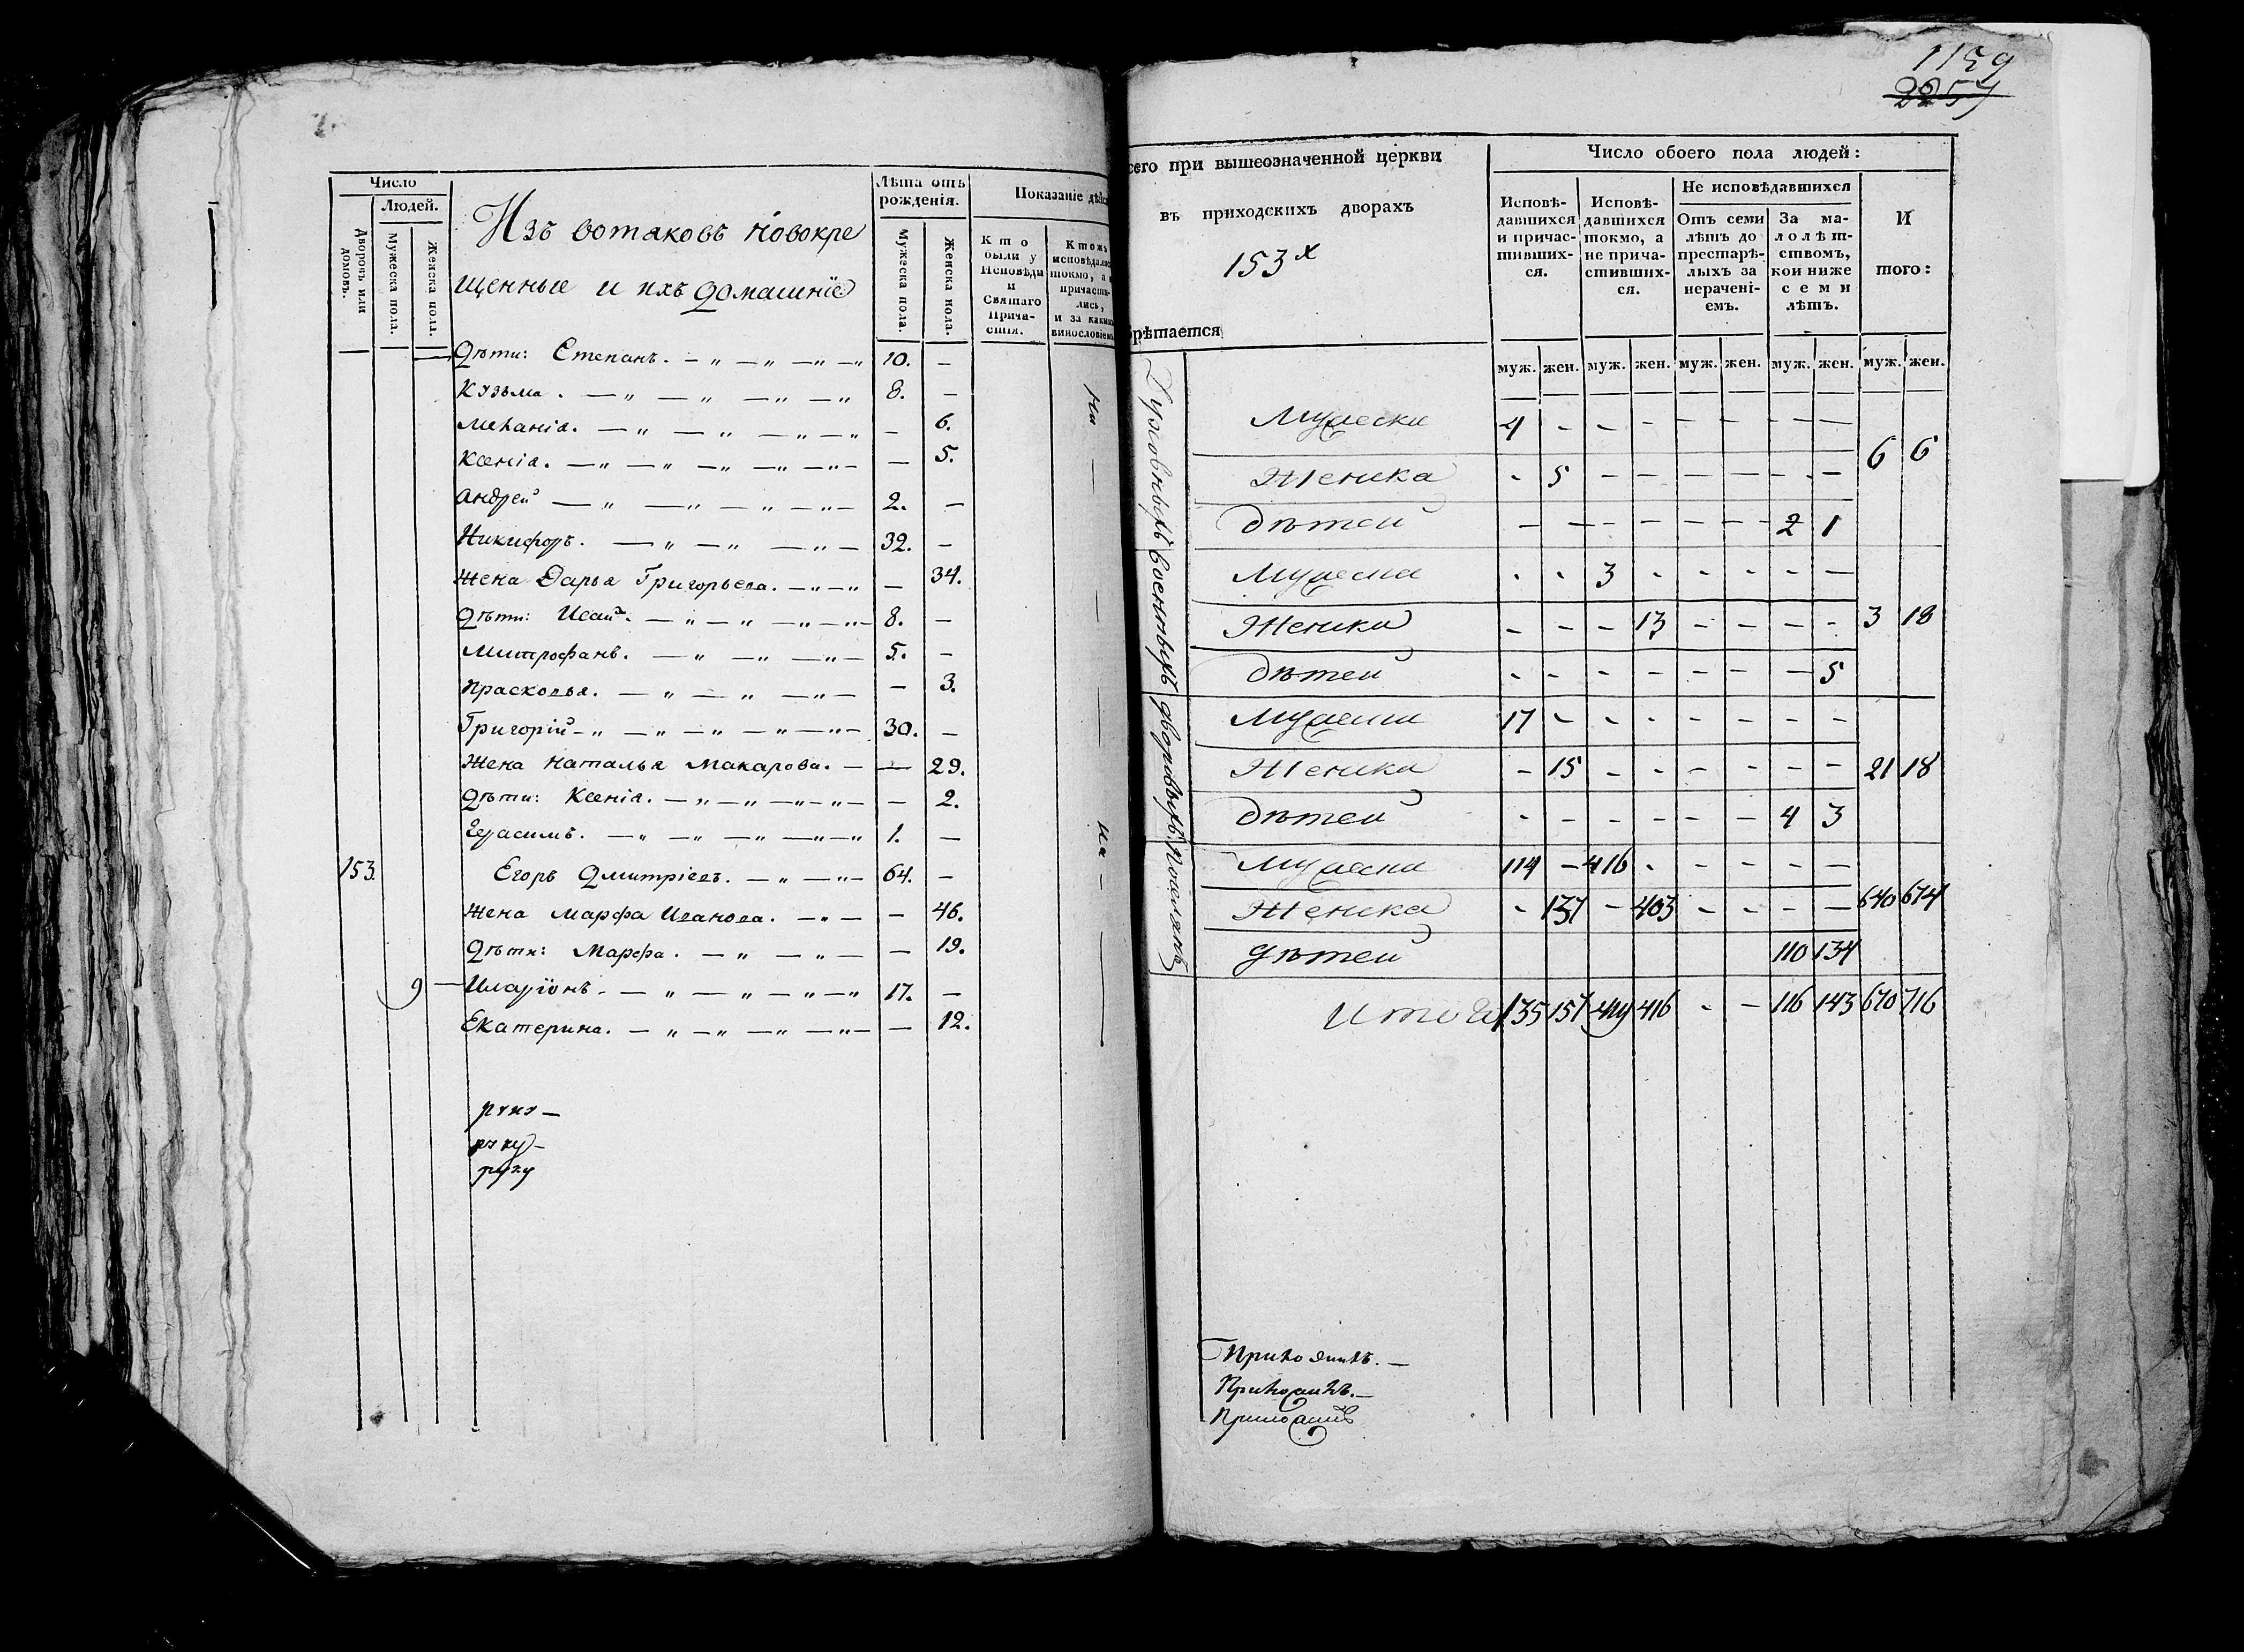 Число
Людей.
Дворовъ или домовъ.
Мужеска пола.
Женска пола.
Изъ вотяковъ новокре
щенные и ихъ домашніе
Лѣта отъ
рожденія.
Мужеска пола.
Женска пола.
Показаніе дѣйс
Кто
были у
Исповѣди
и
Святаго
Прича-
стія.
Ктожъ
исповѣдалис
токмо, а
причасти-
лись,
и за каким
винословіем
Дѣти: Степанъ. 10. —
Кузьма. 8. —
Меланіа. — 6.
Ксеніа. — 5.
Андрей 2. —
Никифоръ. 32. —
Жена Дарья Григорьева. — 34.
Дѣти: Исай. 8. —
Митрофанъ. 5. —
Прасковья. — 3.
Григорій 30. —
Жена Наталья Макарова. — 29.
Дѣти: Ксеніа. — 2.
Герасимъ. 1. —
153. Егоръ Дмитріевъ. 64. —
Жена Марфа Иванова. — 46.
Дѣти: Марфа. — 19.
9 Иларіонъ. 17. —
Екатерина. — 12.
руку
1159
2257
сего при вышеозначенной церкви
въ приходскихъ дворахъ
153х
брѣтается
Число обоего пола людей:
Исповѣ-
давшихся
и причас-
тивших-
ся.
Исповѣ-
давшихся
токмо, а
не прича-
стивших-
ся.
Не исповѣдавшихся
Отъ семи
лѣтъ до
престарѣ-
лыхъ за
нерачені-
емъ.
За ма-
лолѣт-
ствомъ,
кои ниже
семи
лѣтъ.
И
того:
муж. жен. муж. жен. муж. жен. муж. жен. муж. жен.
Духовныхъ военныхъ дворовыхъ поселянъ
Мужеска 4 - - - - - - -
6 6
Женска - 5 - - - - - -
Дѣтей - - - - - - 2 1
Мужеска - - 3 - - - - -
Женска - - - 13 - - - - 3 18
Дѣтей - - - - - - - 5
Мужеска 17 - - - - - - -
Женска - 15 - - - - - - 21 18
Дѣтей - - - - - - 4 3
Мужеска 114 - 416 - - - - -
Женска - 137 - 403 - - - - 640 674
Дѣтей 110 134
Итого 135 157 419 416 - - 116 143 670 716